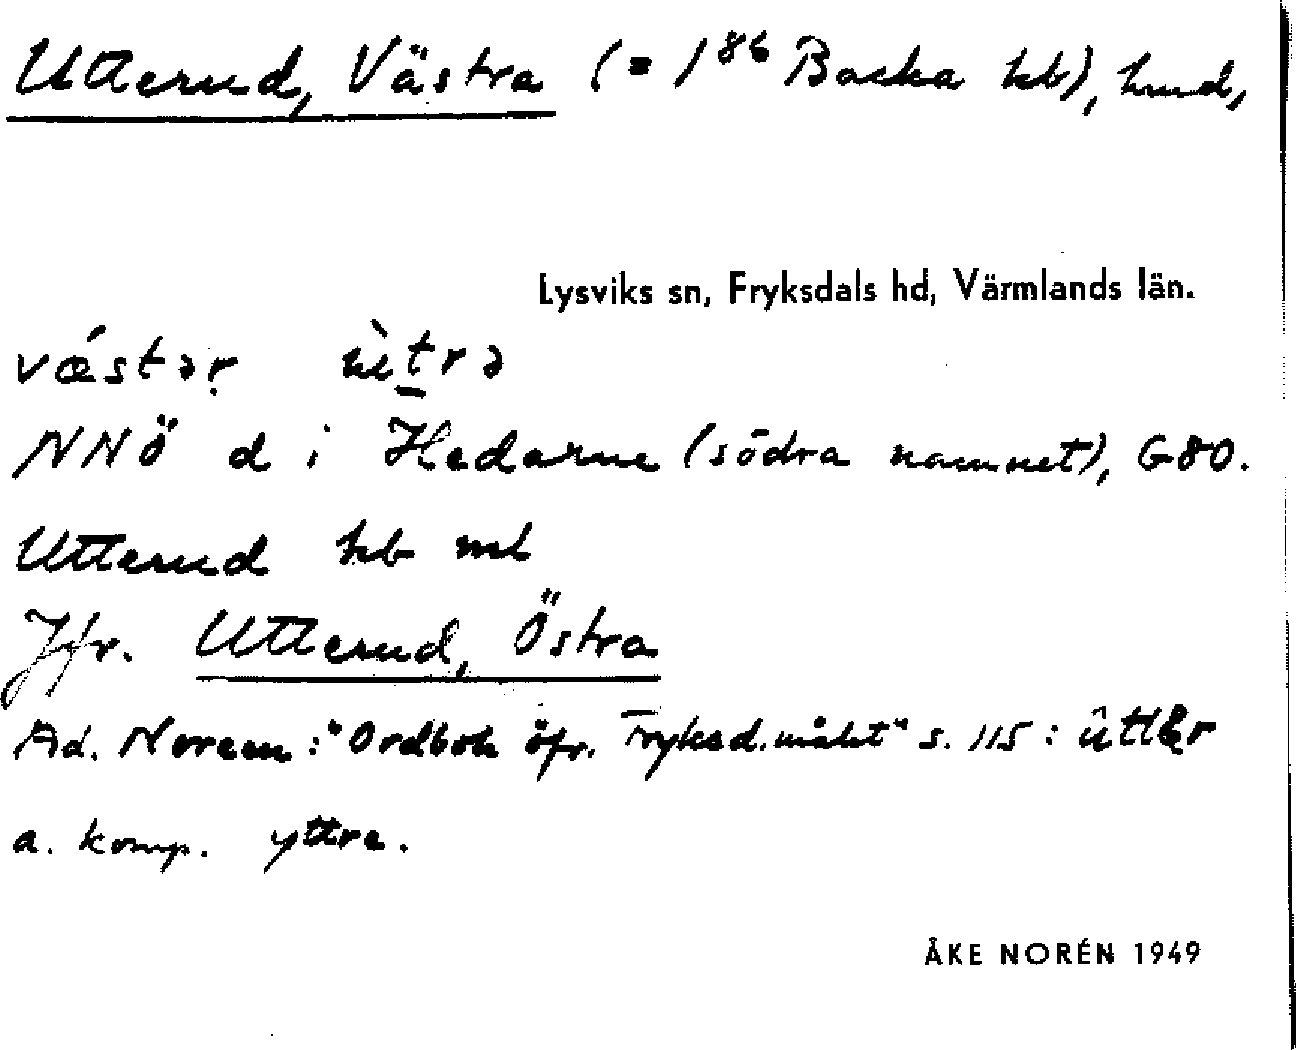 Utterud, Västra (= 1⁸⁶ Backa hb), hmd,
Lysviks sn, Fryksdals hd, Värmlands län.
vǽstər
NNÖ d i Hedarne (södra namnet), G80.
Utterud hb ml
Jfr. Utterud, Östra
Ad. Noreen: "Ordbok öfr. Fryksd.målet" s. 115:
a. komp. yttre.
ÅKE NORÉN 1949